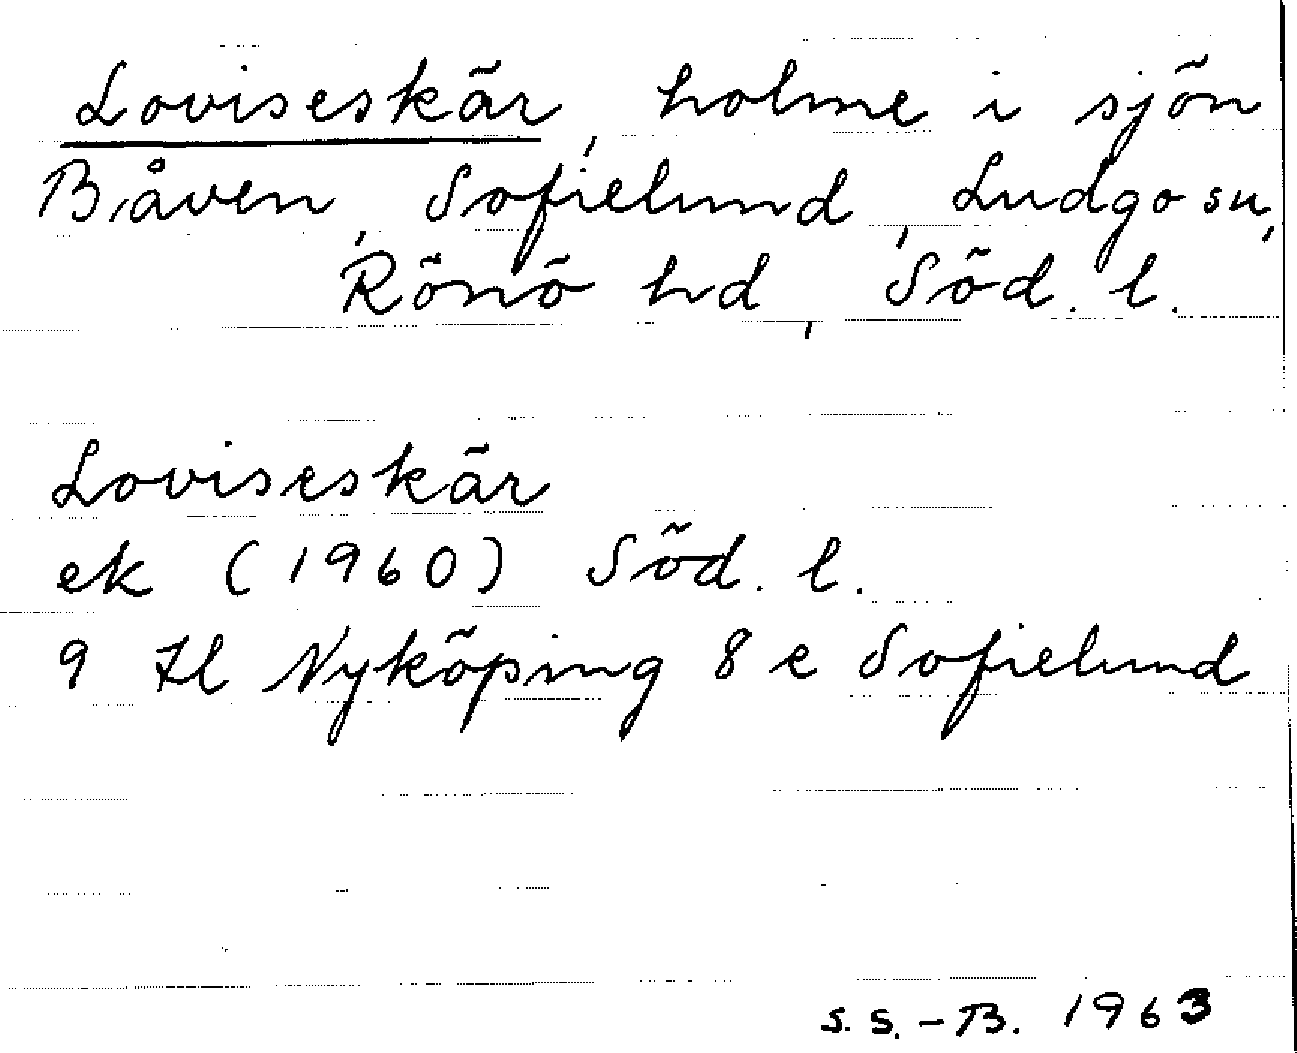 Loviseskär, holme i sjön
Båven, Sofielund, Ludgo sn,
Rönö hd, Söd. l.
Loviseskär
ek (1960) Söd. l.
9 Il Nyköping 8 e Sofielund
S. S.-B. 1963